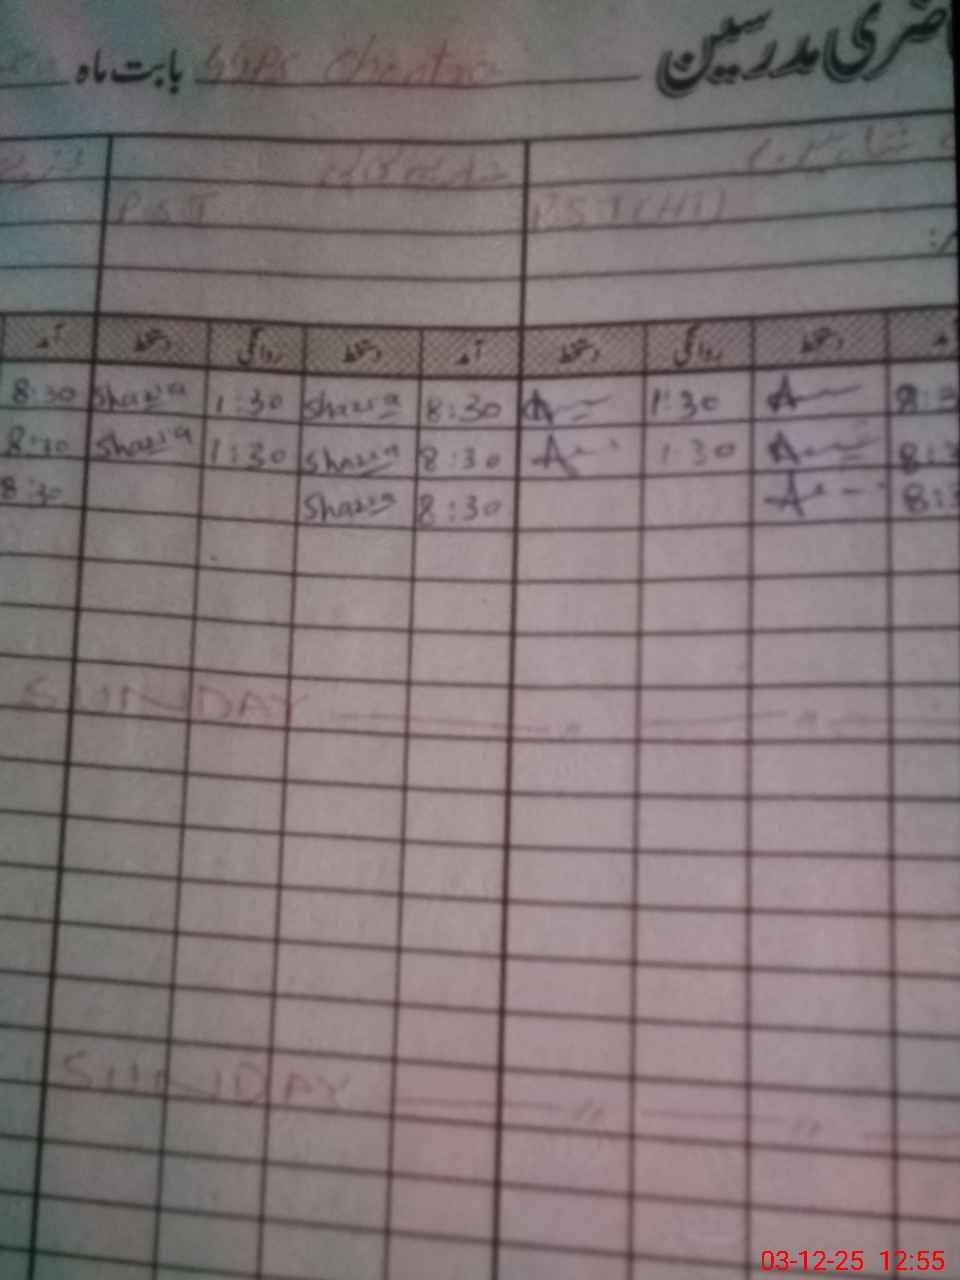 حاضری مدرسین GGPS بابت ماہ
PST PST(H)
آمد دستخط روانگی دستخط آمد دستخط روانگی دستخط آمد
8:30 Shazia 1:30 Shazia 8:30 A 1:30 A 8:3
8:30 Shazia 1:30 Shazia 8:30 A 1:30 A 8:3
8:30 Shazia 8:30 A 8:3
SUNDAY
SUNDAY
03-12-25 12:55